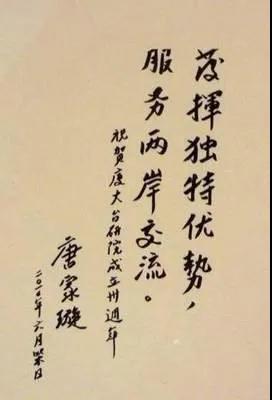 发揮独特优勢,
服务两岸交流。
祝賀厦大台研院成立卅週年
唐家璇
二〇一〇年六月日